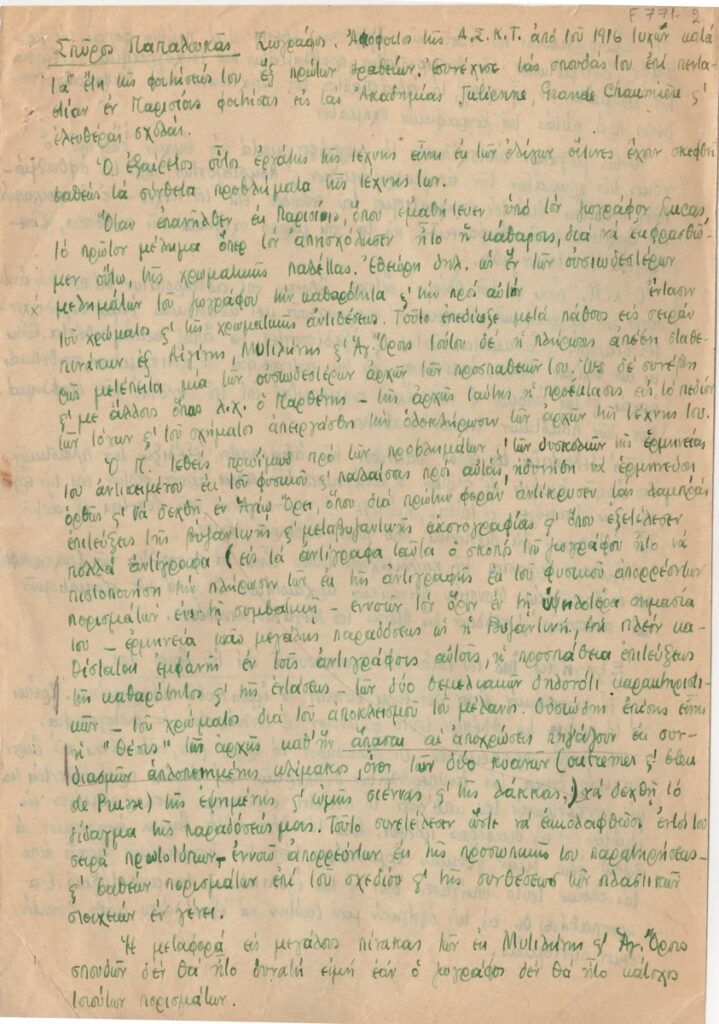 F 771-2
Σπῦρος Παπαλουκᾶς Ζωγράφος. Ἀπόφοιτος τῆς Α.Σ.Κ.Τ. ἀπό τοῦ 1916 τυχών κατά
τά ἔτη τῆς φοιτήσεώς του ἕξ πρώτων βραβείων. Συνέχισε τάς σπουδάς του ἐπί πεντα-
ετίαν ἐν Παρισίοις φοιτήσας εἰς τάς Ἀκαδημίας Julienne, Grande Chaumière ϛ'
ἐλευθέρας σχολάς.
Ὁ ἐξαίρετος οὗτος ἐργάτης τῆς τέχνης εἶναι ἐκ τῶν ὀλίγων οἵτινες ἔχουν σκεφθῆ
βαθέως τά σύνθετα προβλήματα τῆς τέχνης των.
Ὅταν ἐπανῆλθεν ἐκ Παρισίων, ὅπου ἐμαθήτευεν ὑπό τόν ζωγράφον Lucas,
τό πρῶτον μέλημα ὅπερ τόν ἀπησχόλησεν ἦτο ἡ κάθαρσις, διά νά ἐκφρασθῶ-
μεν οὕτω, τῆς χρωματικῆς παλέττας. Ἐθεώρη δηλ. ὡς ἕν τῶν οὐσιωδεστέρων
μελημάτων τοῦ ζωγράφου τήν καθαρότητα ϛ' τήν πρός αὐτόν ἔντασιν
τοῦ χρώματος ϛ' τῆς χρωματικῆς ἀντιθέσεως. Τοῦτο ἐπεδίωξε μετά πάθους εἰς σειράν
πινάκων ἐξ Αἰγίνης, Μυτιλήνης ϛ' Ἁγ. Ὄρους τούτου δέ ἡ πλήρωσις ἀπέβη σταθε-
ρῶς μετέπειτα μία τῶν οὐσιωδεστέρων ἀρχῶν τῶν προσπαθειῶν του. Ὡς δέ συνέβη
ϛ' μέ ἄλλους ὅπως λ.χ. ὁ Παρθένης - τῆς ἀρχῆς ταύτης ἡ προέκτασις εἰς τό πεδίον
τῶν τόνων ϛ' τοῦ σχήματος ἀπειργάσθη τήν ὁλοκλήρωσιν τῶν ἀρχῶν τῆς τέχνης του.
Ὁ Π. τεθείς πρωίμως πρό τῶν προβλημάτων ϛ' τῶν δυσκολιῶν τῆς ἑρμηνείας
του ἀντικειμένου ἐκ τοῦ φυσικοῦ ϛ' παλαίσας πρός αὐτάς, ἠδυνήθη νά ἑρμηνεύση
ὀρθῶς ϛ' νά δεχθῆ ἐν Ἁγίῳ Ὄρει, ὅπου διά πρώτην φοράν ἀντίκρυσεν τάς λαμπράς
ἐπιτεύξεις τῆς βυζαντινῆς ϛ' μεταβυζαντινῆς εἰκονογραφίας ϛ' ὅπου ἐξετέλεσεν
πολλά ἀντίγραφα (εἰς τά ἀντίγραφα ταῦτα ὁ σκοπός τοῦ ζωγράφου ἦτο νά
πιστοποιήση τήν πλήρωσιν τῶν ἐκ τῆς ἀντιγραφῆς ἐκ τοῦ φυσικοῦ ἀπορρεόντων
πορισμάτων ἐν τῆ συμβατικῆ - ἐννοῶν τόν ὅρον ἐν τῆ ὑψηλοτέρα σημασία
του - ἑρμηνεία μιᾶς μεγάλης παραδόσεως ὡς ἡ Βυζαντινή, ἐπί πλέον κα-
θίσταται ἐμφανής ἐν τοῖς ἀντιγράφοις αὐτοῖς, ἡ προσπάθεια ἐπιτεύξεως
τῆς καθαρότητος ϛ' τῆς ἐντάσεως - τῶν δύο θεμελιακῶν δηλονότι χαρακτηριστι-
κῶν - τοῦ χρώματος διά τοῦ ἀποκλεισμοῦ τοῦ μέλανος. Οὐσιώδης ἐπίσης εἶναι
ἡ "θέσις" τῆς ἀρχῆς καθ' ἥν ἅπασαι αἱ ἀποχρώσεις πηγάζουν ἐκ συν-
διασμῶν ἁπλοποιημένης κλίμακος, ἤτοι τῶν δύο κυανῶν (outremer ϛ' bleu
de Prusse) τῆς ἐψημένης ϛ' ὠμῆς σιέννας ϛ' τῆς λάκκας.) νά δεχθῆ τό
δίδαγμα τῆς παραδόσεώς μας. Τοῦτο συνετέλεσεν ὥστε νά ἐκκολαφθῶσι ἐντός του
σειρά πρωτοτύπων - ἐννοῶ ἀπορρεόντων ἐκ τῆς προσωπικῆς του παρατηρήσεως -
ϛ' βαθέων πορισμάτων ἐπί τοῦ σχεδίου ϛ' τῆς συνθέσεως τῶν πλαστικῶν
στοιχείων ἐν γένει.
Ἡ μεταφορά εἰς μεγάλους πίνακας τῶν ἐκ Μυτιλήνης ϛ' Ἁγ. Ὄρους
σπουδῶν δέν θά ἦτο δυνατή εἰμή ἐάν ὁ ζωγράφος δέν θά ἦτο κάτοχος
τοιούτων πορισμάτων.